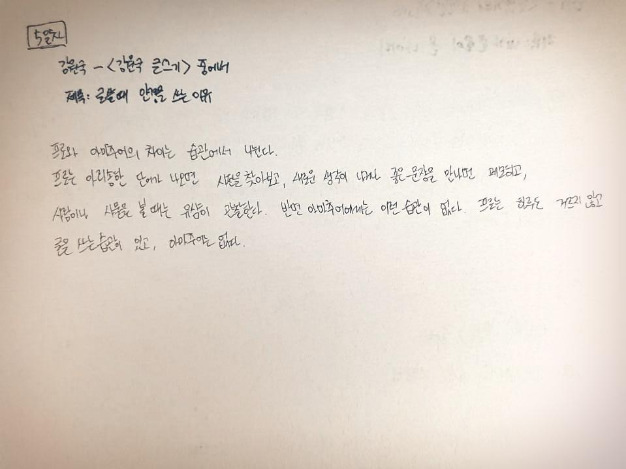 5일차
강원국 - <강원국 글쓰기> 중에서
제목: 글쓸때 안경을 쓰는 이유
프로와 아마추어의 차이는 습관에서 나뉜다.
프로는 아리송한 단어가 나오면 사전을 찾아보고, 새로운 생각이 나거나 좋은 문장을 만나면 메모하고,
사람이나 사물을 볼 때는 유심히 관찰한다. 반면 아마추어에게는 이런 습관이 없다. 프로는 하루도 거르지 않고
글을 쓰는 습관이 있고, 아마추어는 없다.